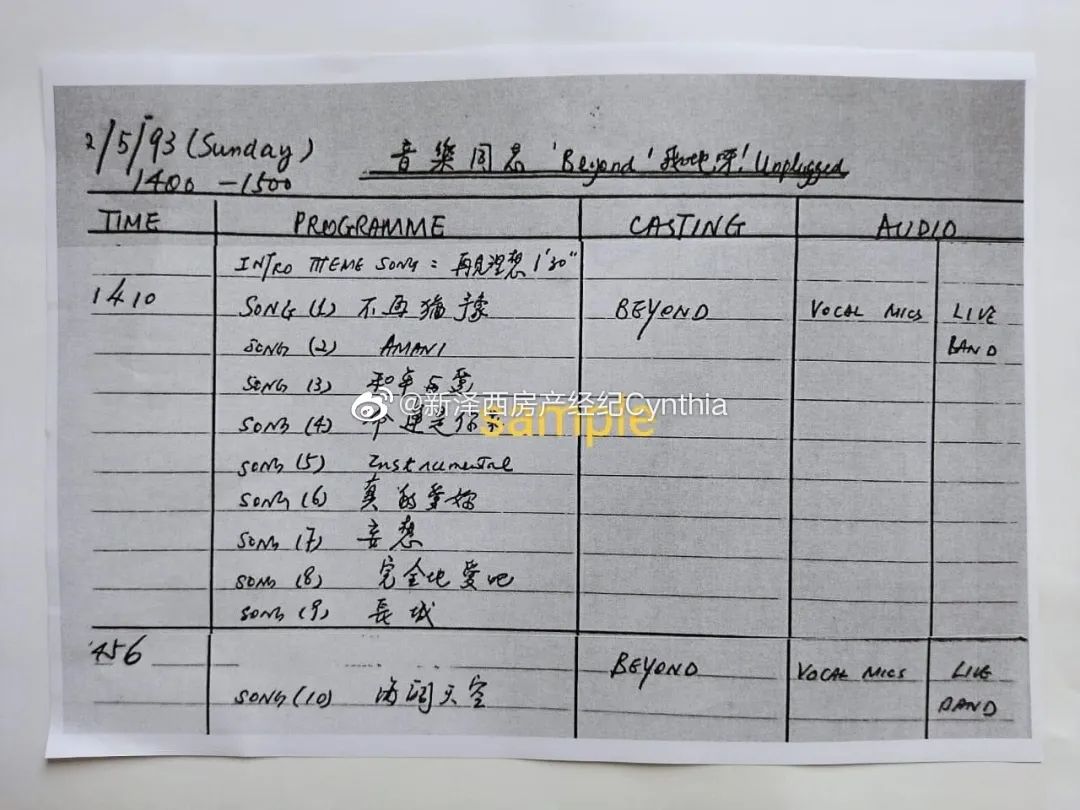 2/5/93 (Sunday)
1400 - 1500
音樂同 'Beyond' 我哋呀! Unplugged
TIME PROGRAMME CASTING AUDIO
INTRO THEME SONG : 再見理想 1'30"
1410 SONG (1) 不再猶豫 BEYOND VOCAL MICS LIVE
SONG (2) AMANI BAND
SONG (3) 和平与愛
@新泽西房产经纪Cynthia
sample
SONG (4) 命運是你家
SONG (5) Instrumental
SONG (6) 真的愛妳
SONG (7) 妄想
SONG (8) 完全地愛吧
SONG (9) 長城
1456 BEYOND VOCAL MICS LIVE
SONG (10) 海闊天空 BAND